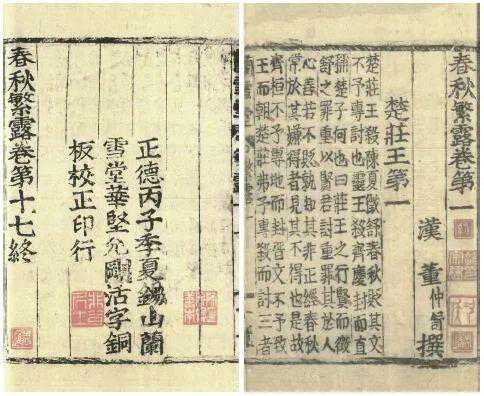 春秋繁露卷第一
漢 董仲舒 撰
楚莊王第一
楚莊王殺陳夏徵舒春秋貶其文
不予專討也靈王殺齊慶封而直
稱楚子何也曰莊王之行賢而徵
舒之罪重以賢君討重罪其於人
心善若不貶孰知其非正經春秋
常於其嫌得者見其不得也是故
齊桓不予專地而封晉文不予致
王而朝楚莊弗予專殺而討三者
正德丙子季夏錫山蘭
雪堂華堅允剛活字銅
板校正印行
春秋繁露卷第十七終